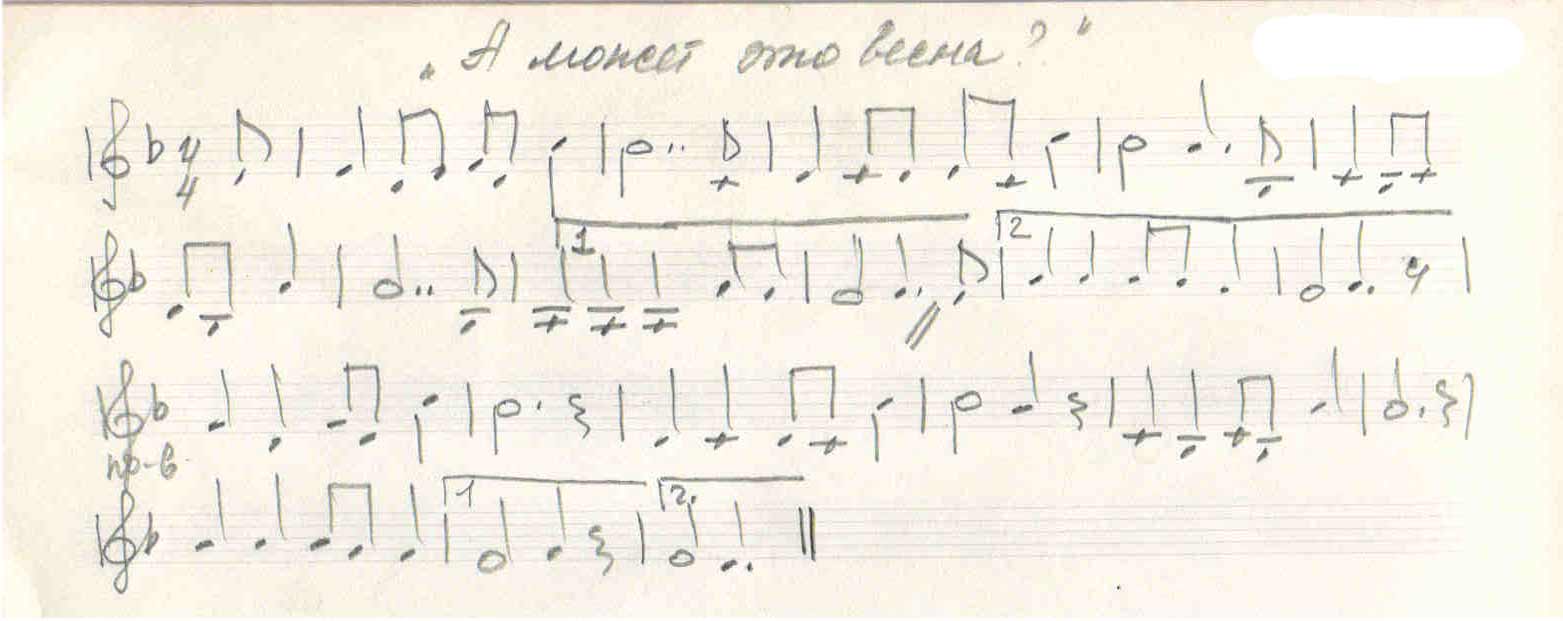 „А может это весна?"
4
4
1
2
пр-в
1
2.